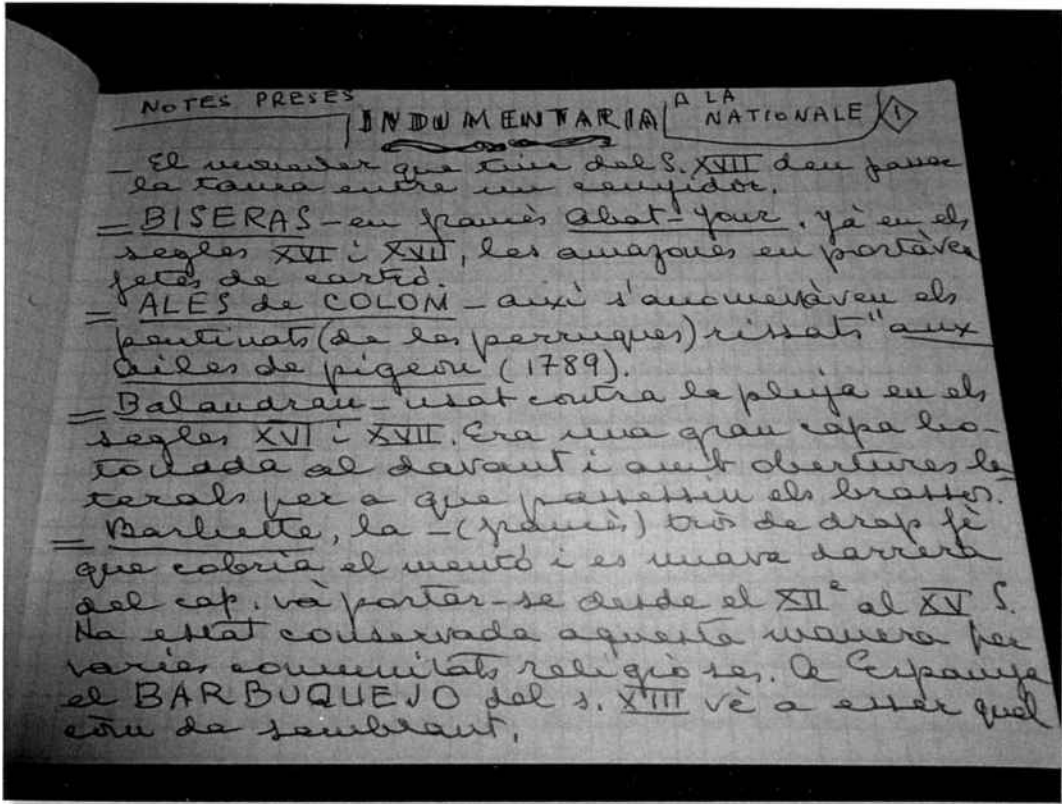 NOTES PRESES INDUMENTARIA A LA NATIONALE 1
- El mocador que tinc del S. XVII deu passar
la tanca entre un cenyidor.
= BISERAS - en francès abat-jour. Jà en els
segles XVI i XVII, les amazones en portàven
fetes de cartró.
= ALES de COLOM - aixì s'anomenàven els
pentinats (de les perruques) rissats "aux
ailes de pigeon (1789).
= Balandrau - usat contra la pluja en els
segles XVI i XVII. Era una gran capa bo-
tonada al davant i amb obertures la-
terals per a que passessin els brassos.
= Barbette, la - (francès) tros de drap fi
que cobria el mentó i es nuava darrera
del cap. và portar-se desde el XIIe al XV S.
Ha estat conservada aquesta manera per
varies comunitats religioses. A Espanya
el BARBUQUEJO del s. XIII vè a esser quel
com de semblant.